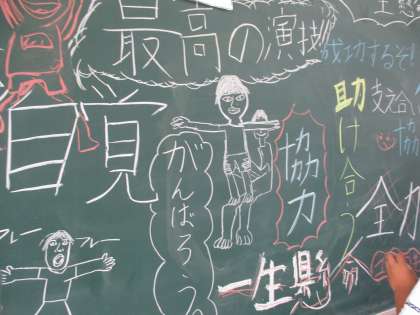 最高の演技
成功するぞ!
目覚
がんばろう
協力
助け合う
支え合
協
全力
一生懸命
フレー
フレー